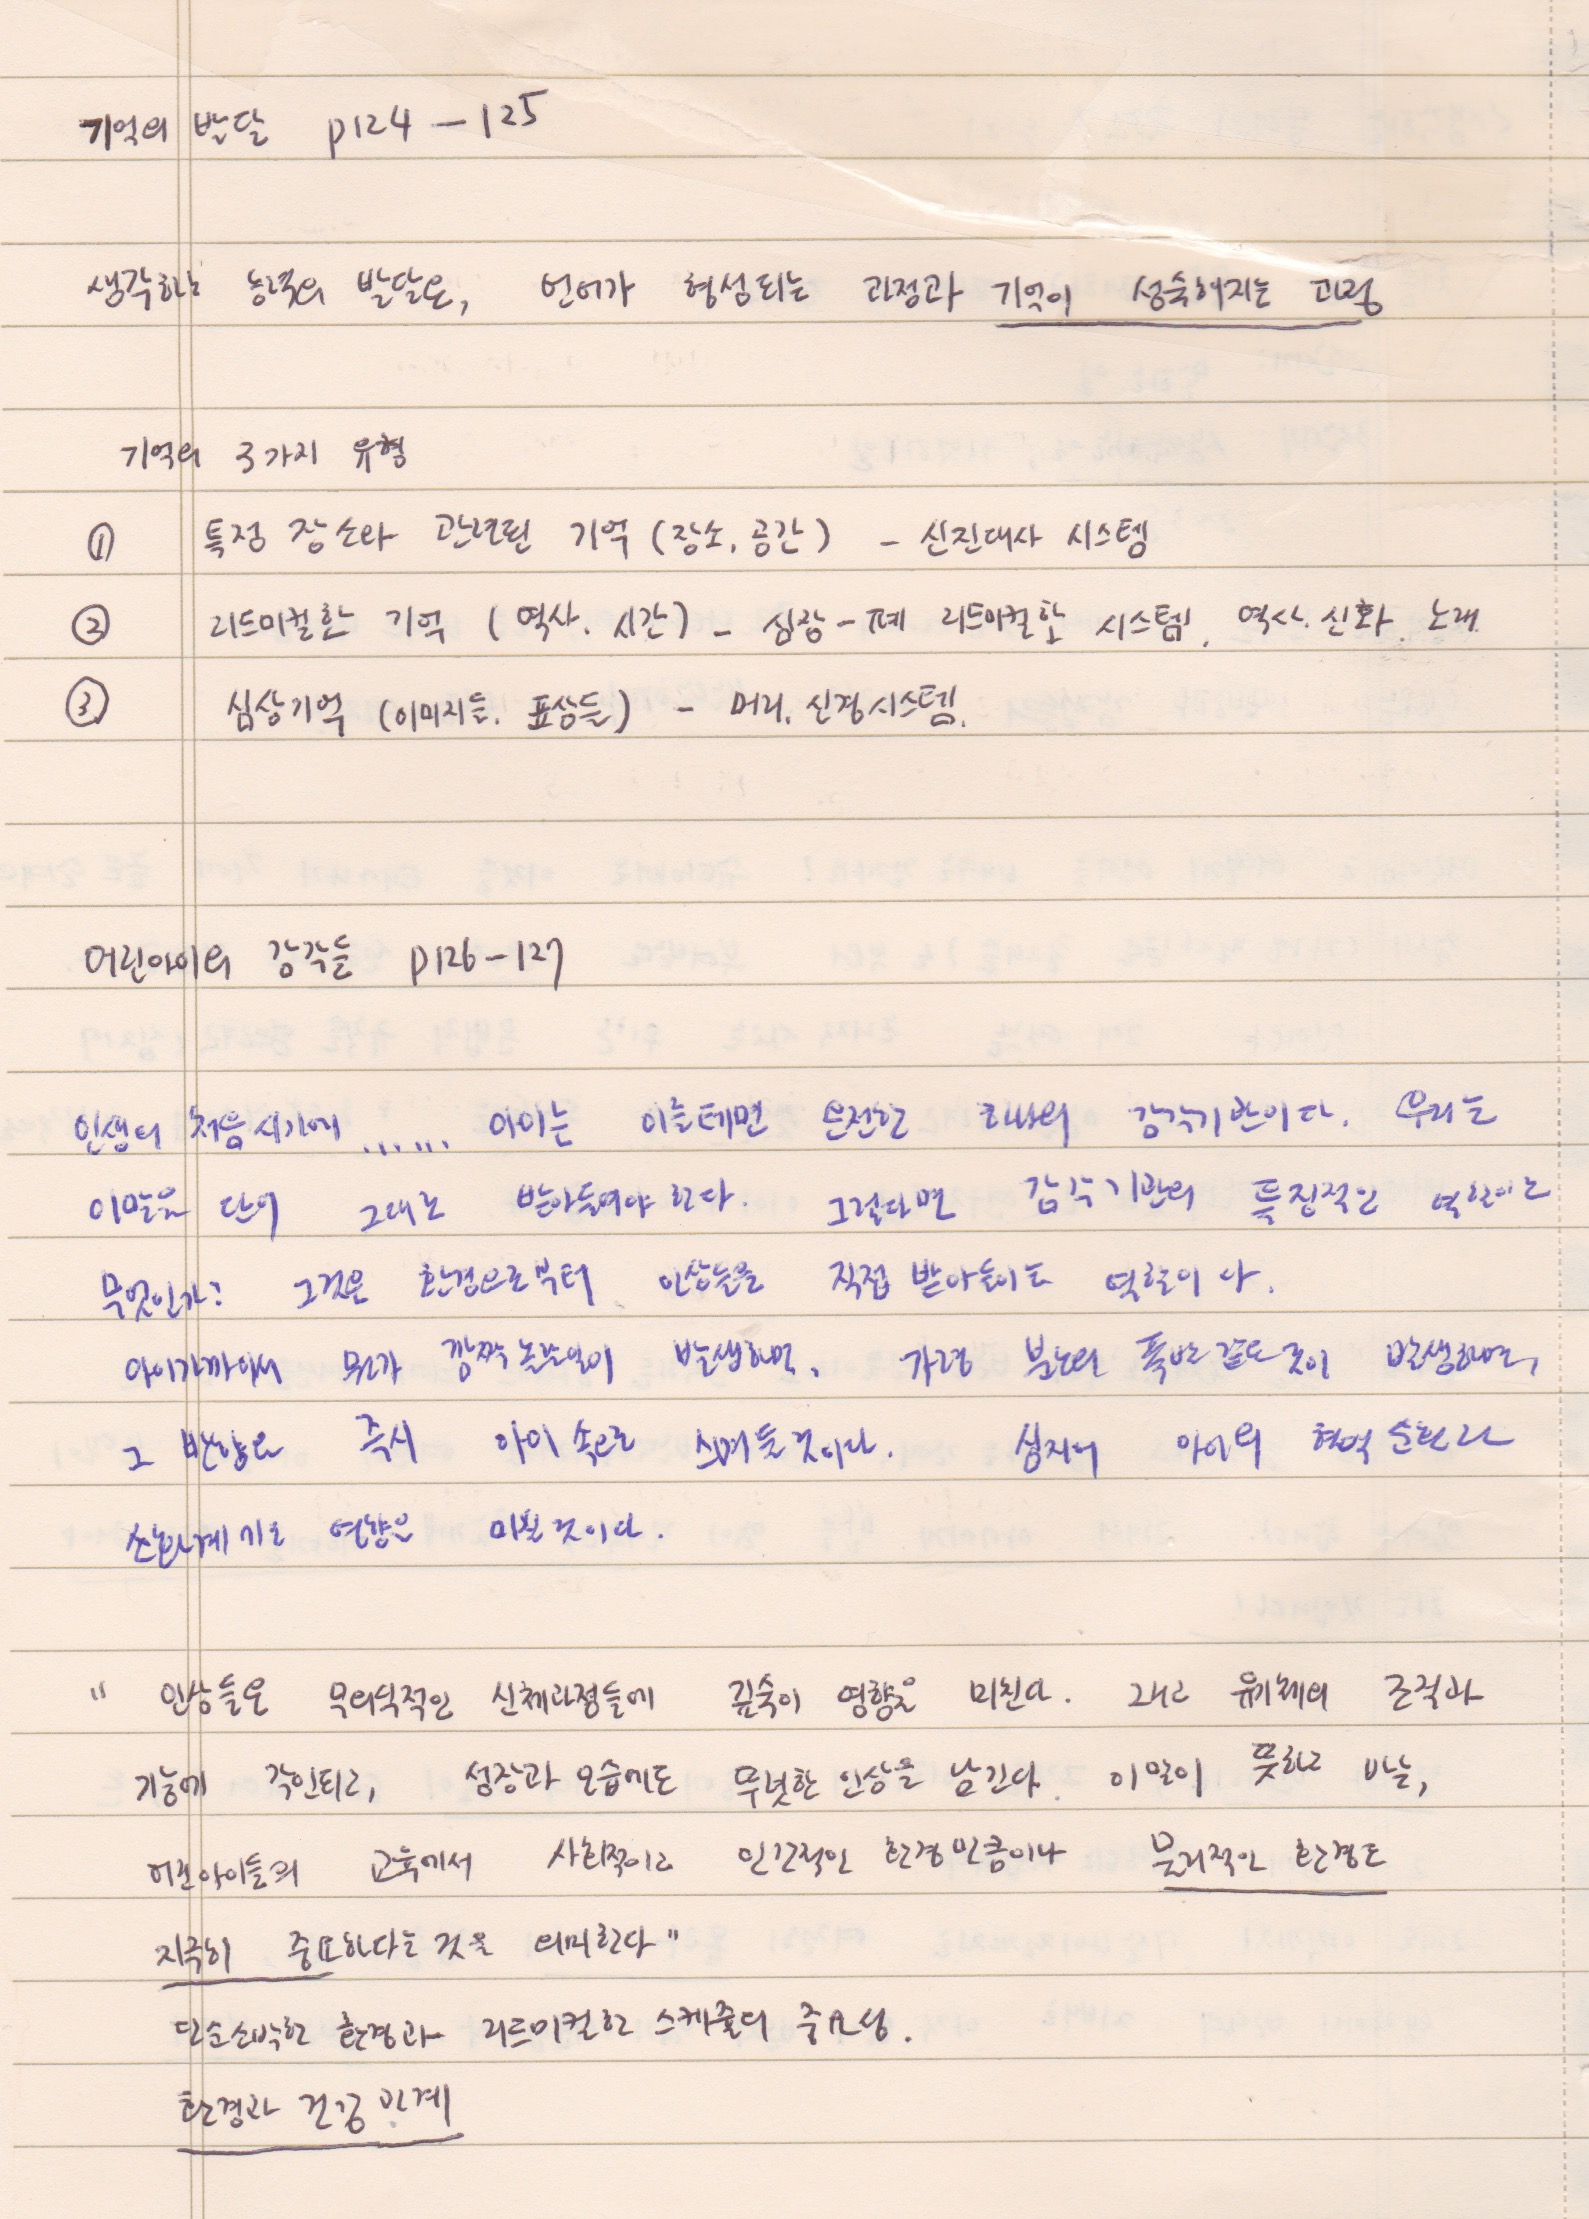 기억의 발달 p124 – 125
생각하는 능력의 발달은, 언어가 형성되는 과정과 기억이 성숙해지는 과정
기억의 3가지 유형
① 특정 장소와 관련된 기억 (장소, 공간) – 신진대사 시스템
② 리드미컬한 기억 (역사. 시간) – 심장-폐 리드미컬한 시스템. 역사. 신화. 노래
③ 심상기억 (이미지들. 표상들) – 머리. 신경시스템.
어린아이의 감각들 p126-127
인생의 처음시기에 ...... 아이는 이를테면 온전한 하나의 감각기관이다. 우리는
이말을 단어 그대로 받아들여야 한다. 그렇다면 감각기관의 특징적인 역할은
무엇인가? 그것은 환경으로부터 인상들을 직접 받아들이는 역할이다.
아이가까이서 뭔가 깜짝놀랄일이 발생하면, 가령 분노의 폭발같은 것이 발생하면,
그 반향은 즉시 아이 속으로 스며들 것이다. 심지어 아이의 혈액순환과
소화계기로 영향을 미칠 것이다.
" 인상들은 무의식적인 신체과정들에 깊숙이 영향을 미친다. 그리고 유기체의 조직과
기능에 각인되고, 성장과 모습에도 뚜렷한 인상을 남긴다. 이 말이 뜻하고 바는,
어린아이들의 교육에서 사회적이고 인간적인 환경만큼이나 물리적인 환경도
지극히 중요하다는 것을 의미한다"
단순소박한 환경과 리드미컬한 스케줄의 중요성.
환경과 건강 관계